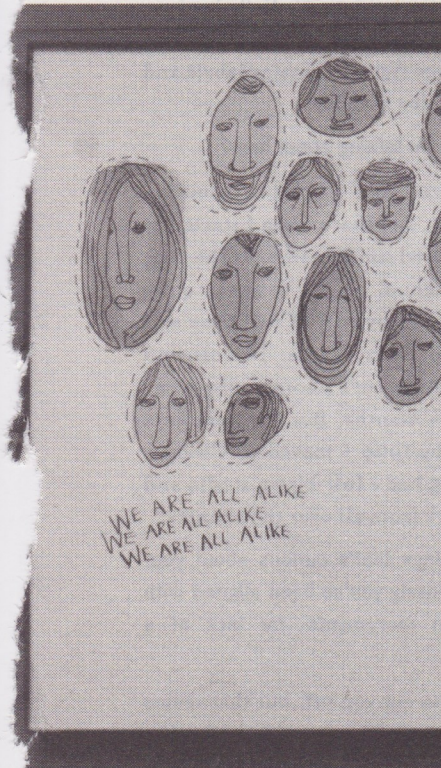 WE ARE ALL ALIKE
WE ARE ALL ALIKE
WE ARE ALL ALIKE